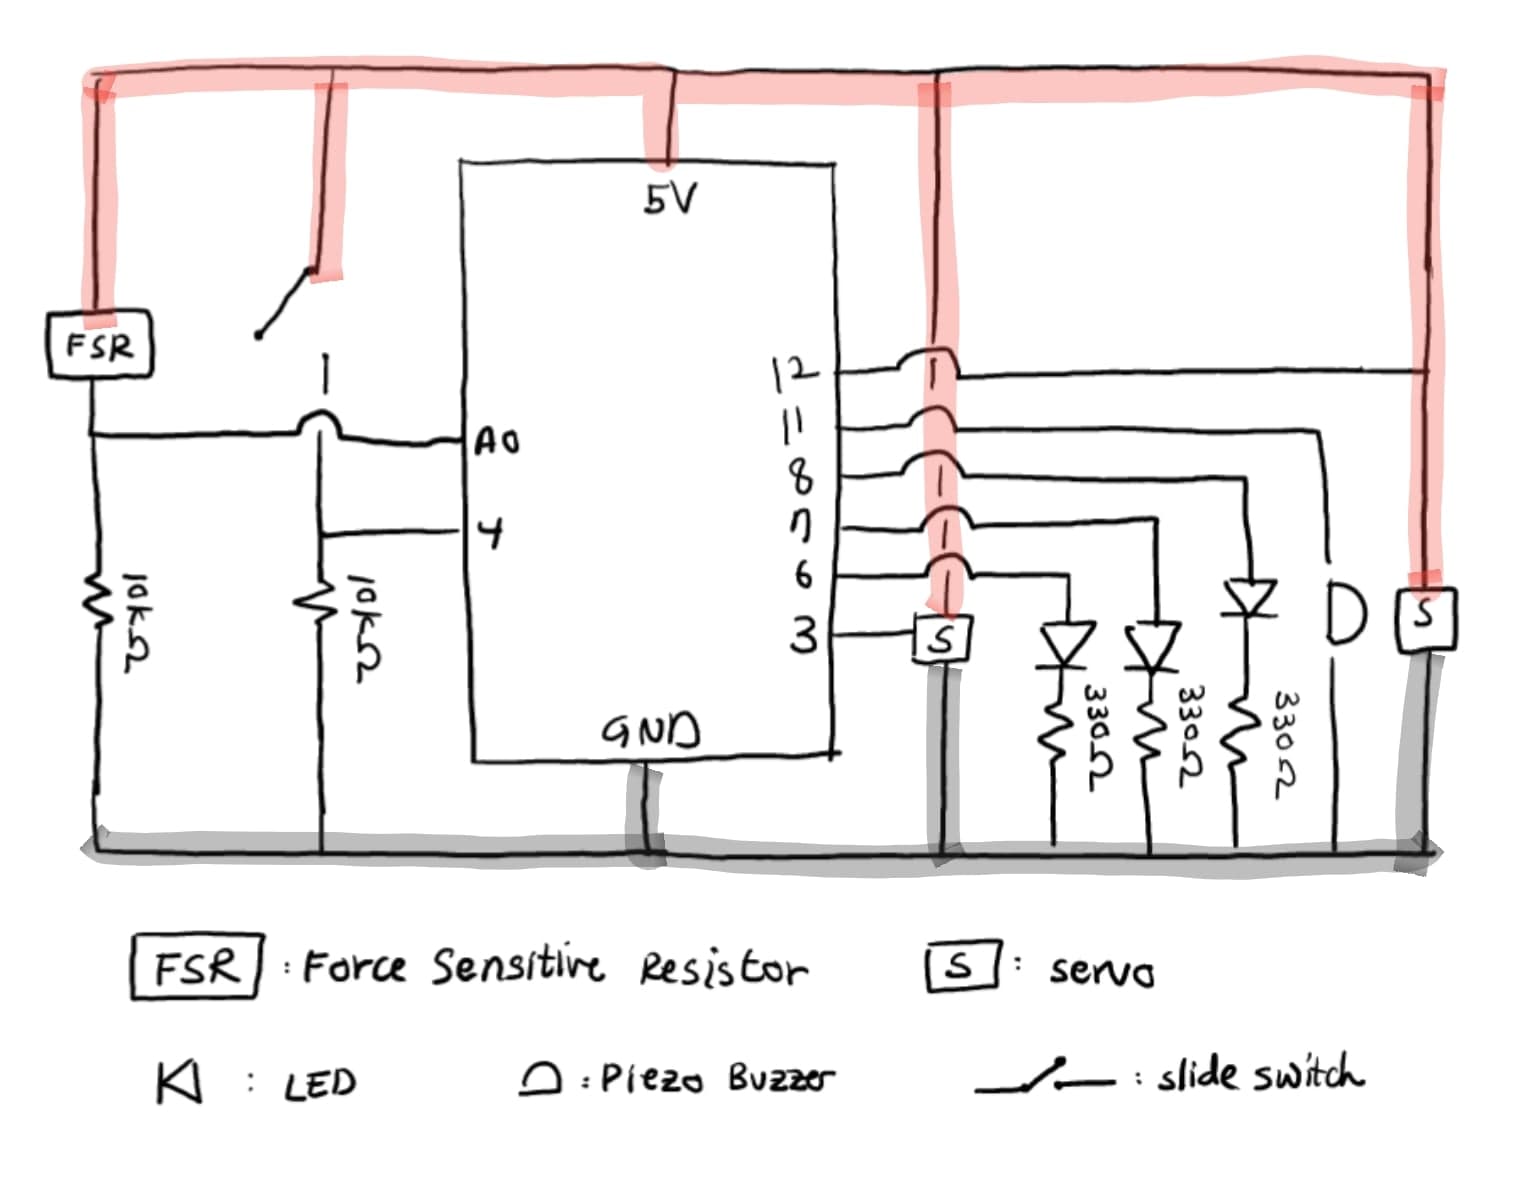 5V
FSR
12
11
A0
8
4
7
6
3
S
S
10kΩ
10kΩ
330Ω
330Ω
330Ω
GND
FSR : Force Sensitive Resistor
S : servo
: LED
: Piezo Buzzer
: slide switch